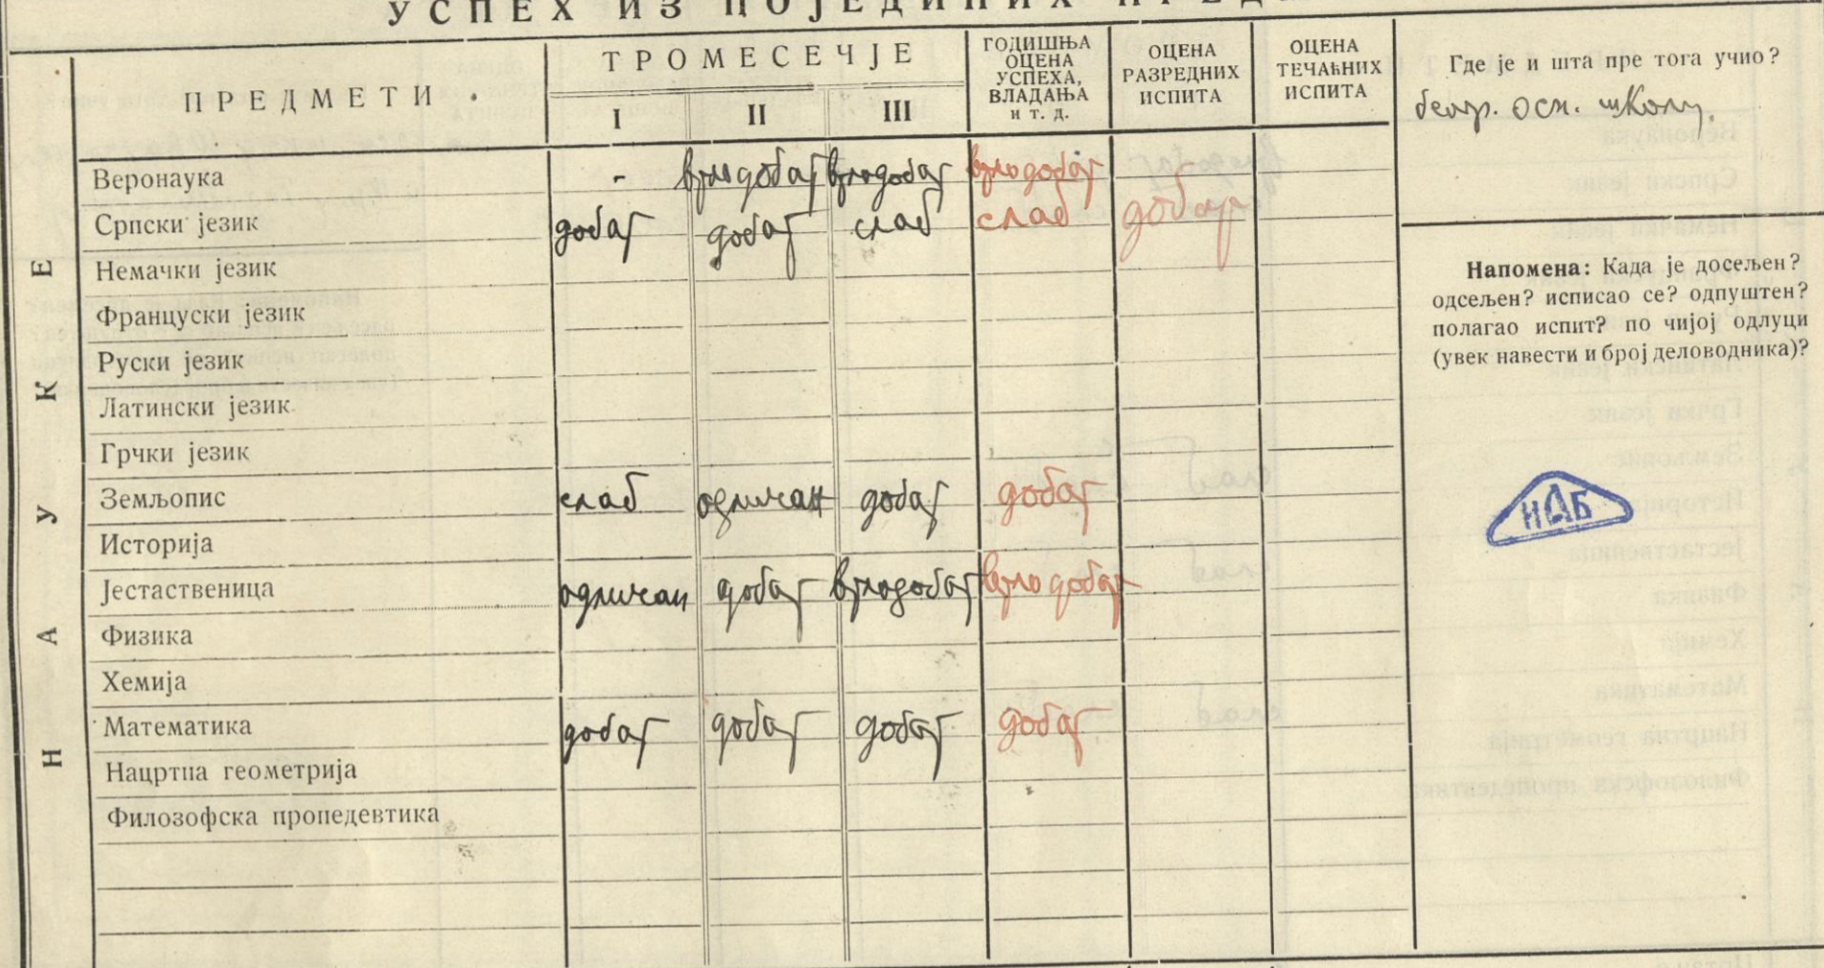 УСПЕХ ИЗ ПОЈЕДИНИХ
ПРЕДМЕТИ
ТРОМЕСЕЧЈЕ
I II III
ГОДИШЊА
ОЦЕНА
УСПЕХА,
ВЛАДАЊА
и т. д.
ОЦЕНА
РАЗРЕДНИХ
ИСПИТА
ОЦЕНА
ТЕЧАЋНИХ
ИСПИТА
Где је и шта пре тога учио?
беогр. осн. школу.
НАУКЕ
Веронаука - врлодобар врлодобар врлодобар
Српски језик добар добар слаб слаб добар
Немачки језик
Француски језик
Руски језик
Латински језик
Грчки језик
Земљопис слаб одличан добар добар
Историја
Јестаственица одличан добар врлодобар врло добар
Физика
Хемија
Математика добар добар добар добар
Нацртна геометрија
Филозофска пропедевтика
Напомена: Када је досељен?
одсељен? исписао се? одпуштен?
полагао испит? по чијој одлуци
(увек навести и број деловодника)?
ИАБ